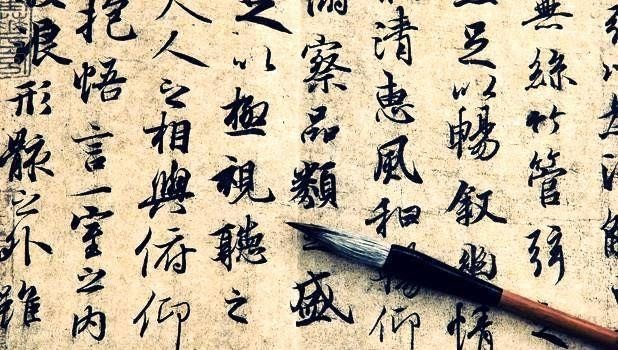 以為流
無絲竹管弦之
足以暢敘幽情
清惠風和暢仰
察品類之盛
足以極視聽之
人之相與俯仰
抱悟言一室之內
浪形骸之外雖